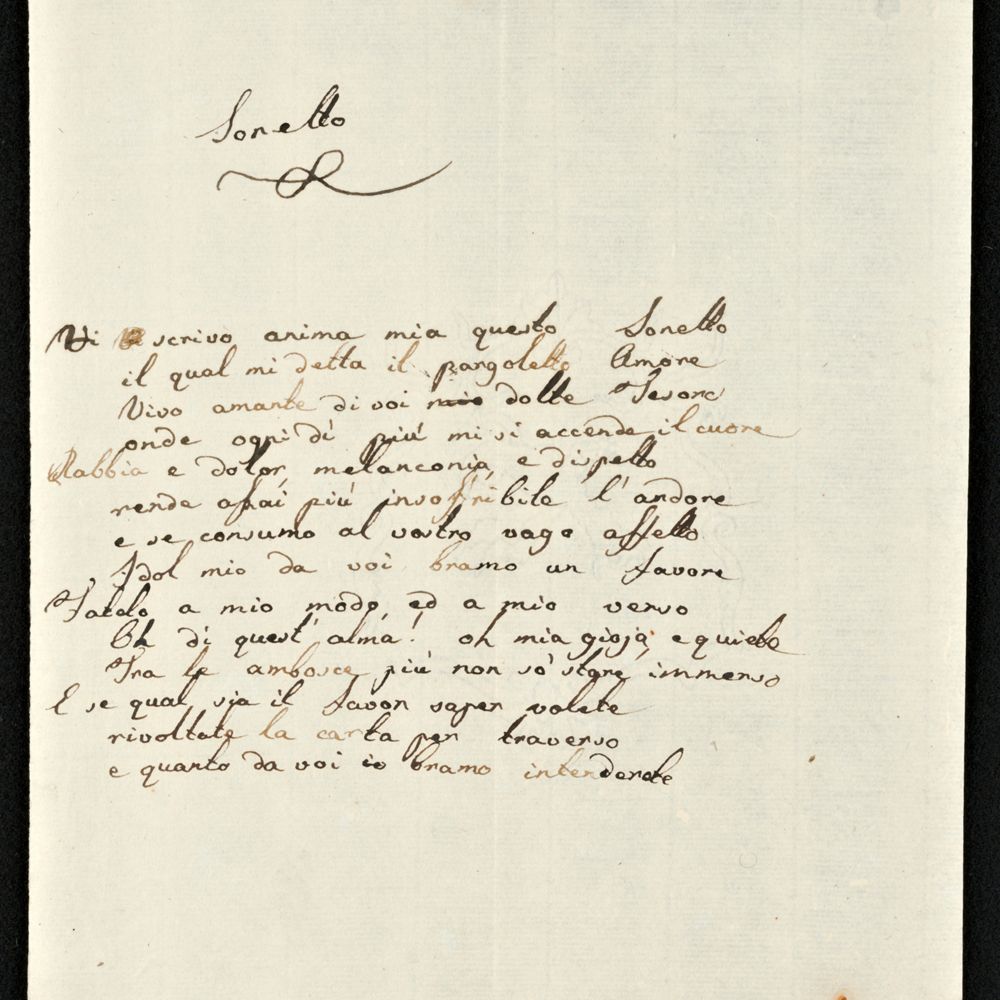 Sonetto
Vi scrivo anima mia questo Sonetto
il qual mi detta il pargoletto Amore
Vivo amante di voi mio dolce Tesoro
onde ogni dì più mi si accende il cuore
Rabbia e dolor, melanconia, e dispetto
rende assai più insoffribile l'ardore
e se consumo al vostro vago affetto
Idol mio da voi bramo un favore
Fatelo a mio modo, ed a mio verso
Oh di quest'alma! oh mia gioja, e quiete
Tra le ambosce più non sò stare immerso
E se qual sia il favor saper volete
rivoltate la carta per traverso
e quanto da voi io bramo intenderete